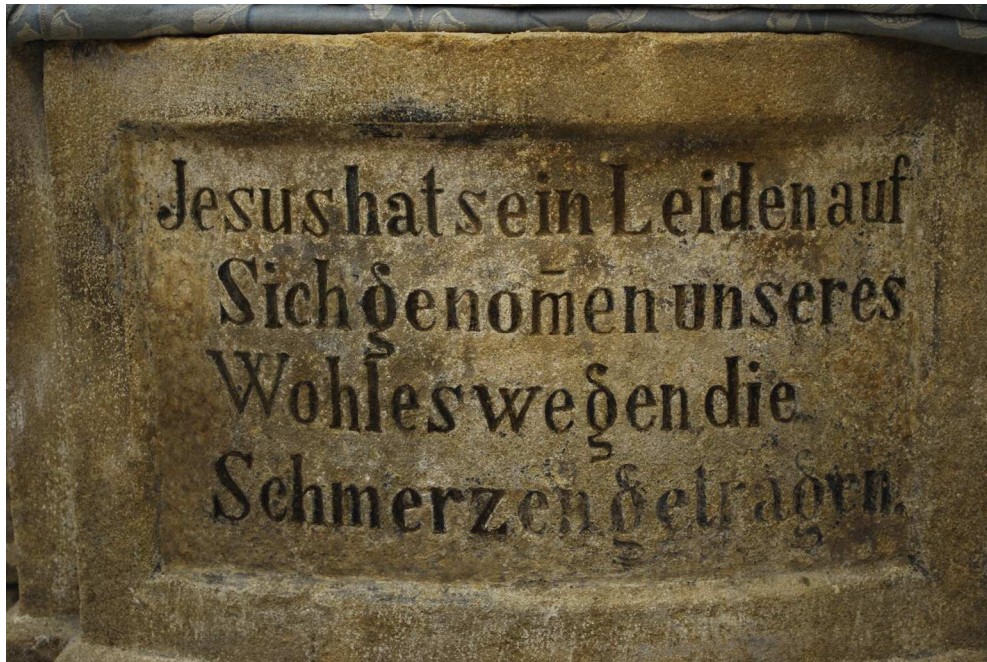 Jesus hat sein Leiden auf
Sich genom̄en unseres
Wohles wegen die
Schmerzen getragen.